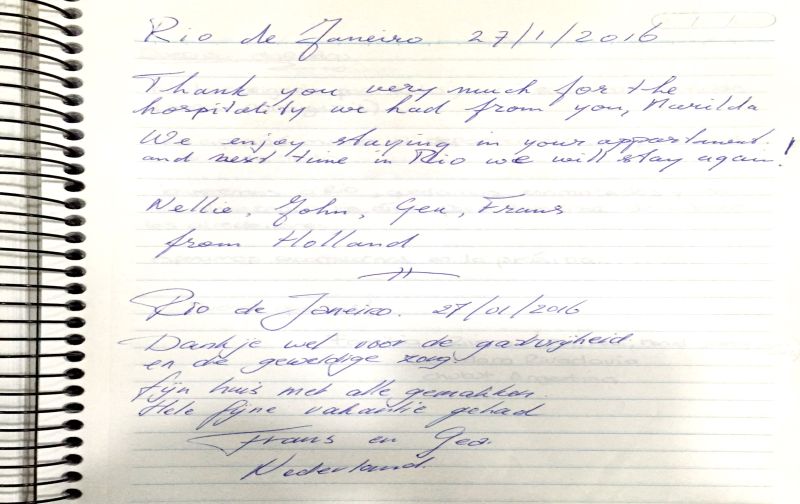 Rio de Janeiro 27/1/2016
Thank you very much for the
hospitality we had from you, Marilda
We enjoy staying in your appartment.
and next time in Rio we will stay again!
Nellie, John, Gea, Frans
from Holland
Rio de Janeiro. 27/01/2016
Dank je wel voor de gastvrijheid
en die geweldige zorg.
fijn huis met alle gemakken.
Hele fijne vakantie gehad
Frans en Gea.
Nederland.